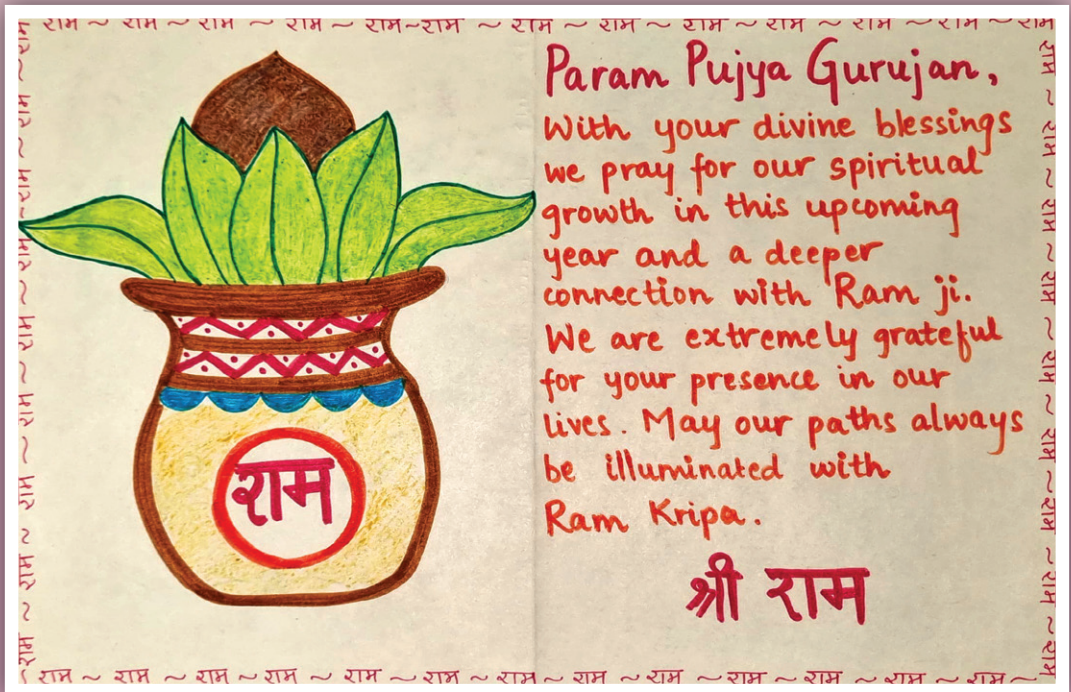 राम ~ राम ~ राम ~ राम ~ राम~राम ~ राम ~ राम ~ राम ~ राम ~ राम ~ राम ~ राम
राम
Param Pujya Gurujan,
With your divine blessings
we pray for our spiritual
growth in this upcoming
year and a deeper
connection with Ram ji.
We are extremely grateful
for your presence in our
lives. May our paths always
be illuminated with
Ram Kripa.
श्री राम
राम ~ राम ~ राम ~ राम ~ राम ~ राम ~ राम ~ राम ~ राम ~ राम ~ राम ~ राम